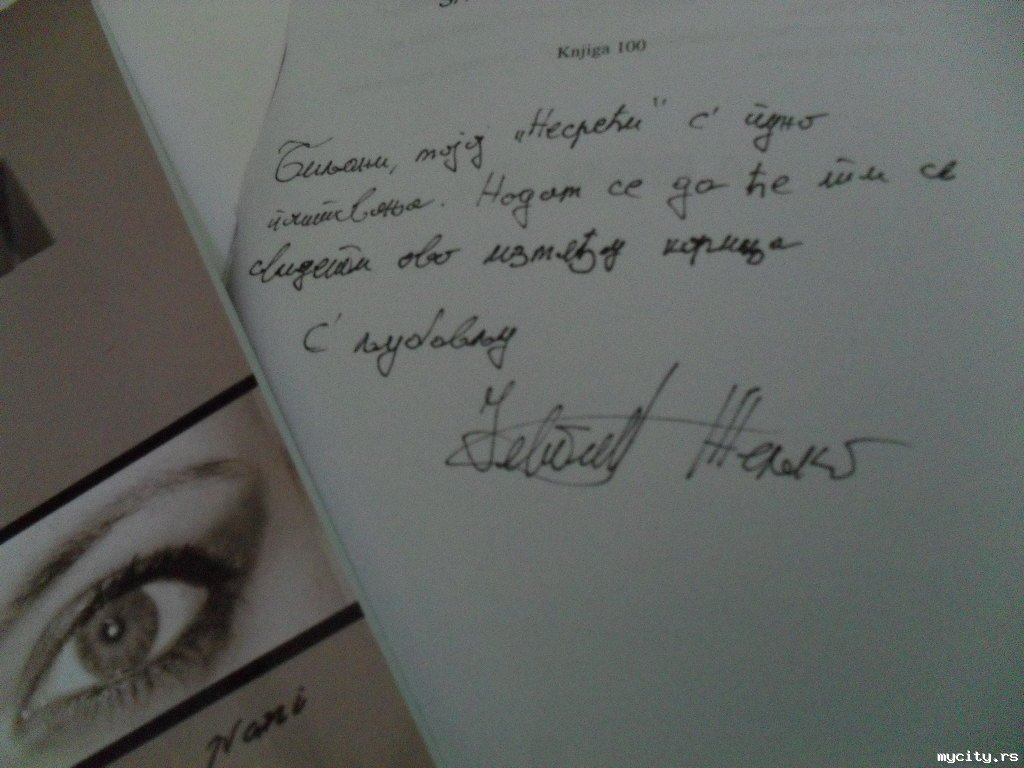 Knjiga 100
Биљани, мојој „Несрећи" с' пуно
поштовања. Надам се да ће ти се
свидети ово између корица
С' љубављу
Nani
mycity.rs